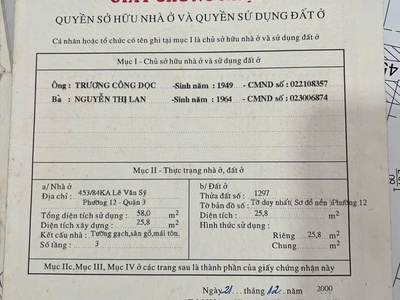 QUYỀN SỞ HỮU NHÀ Ở VÀ QUYỀN SỬ DỤNG ĐẤT Ở
Cá nhân hoặc tổ chức có tên ghi tại mục I là chủ sở hữu nhà ở và sử dụng đất ở
Mục I - Chủ sở hữu nhà ở và sử dụng đất ở
Ông : TRƯƠNG CÔNG DỌC -Sinh năm : 1949 - CMND số : 022108357
Bà : NGUYỄN THỊ LAN -Sinh năm : 1964 - CMND số : 023006874
Mục II - Thực trạng nhà ở, đất ở
a/ Nhà ở
Địa chỉ : 453/84KA Lê Văn Sỹ
Phường 12 - Quận 3
Tổng diện tích sử dụng : 58,0 m2
Diện tích xây dựng : 25,8 m2
Kết cấu nhà : Tường gạch,sàn gỗ,mái tôn.
Số tầng : 3
b/ Đất ở
Thửa đất số : 1297
Tờ bản đồ số : Tờ duy nhất( Sơ đồ nền )Phường 12
Diện tích : 25,8 m2
Hình thức sử dụng :
Riêng 25,8 m2
Chung m2
Mục IIc, Mục III, Mục IV ở các trang sau là thành phần của giấy chứng nhận này
Ngày 21 tháng 12 năm 2000